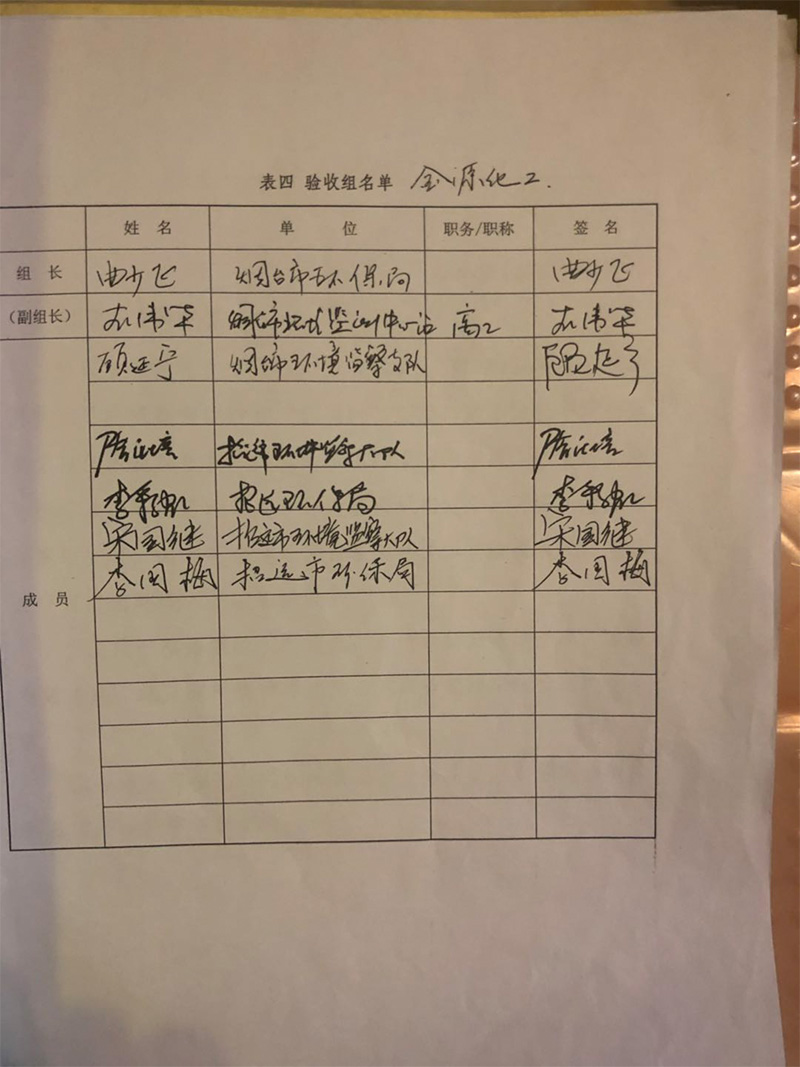 表四 验收组名单 金源化工.
姓 名 单 位 职务/职称 签 名
组 长 曲少飞 烟台市环保局 曲少飞
(副组长) 伟华 烟台市环境监测中心站 高工 伟华
顾延宁 烟台市环境监察支队 顾延宁
招远市环境监察大队
李 招远环保局 李
宋国继 招远市环境监察大队 宋国继
李国梅 招远市环保局 李国梅
成 员